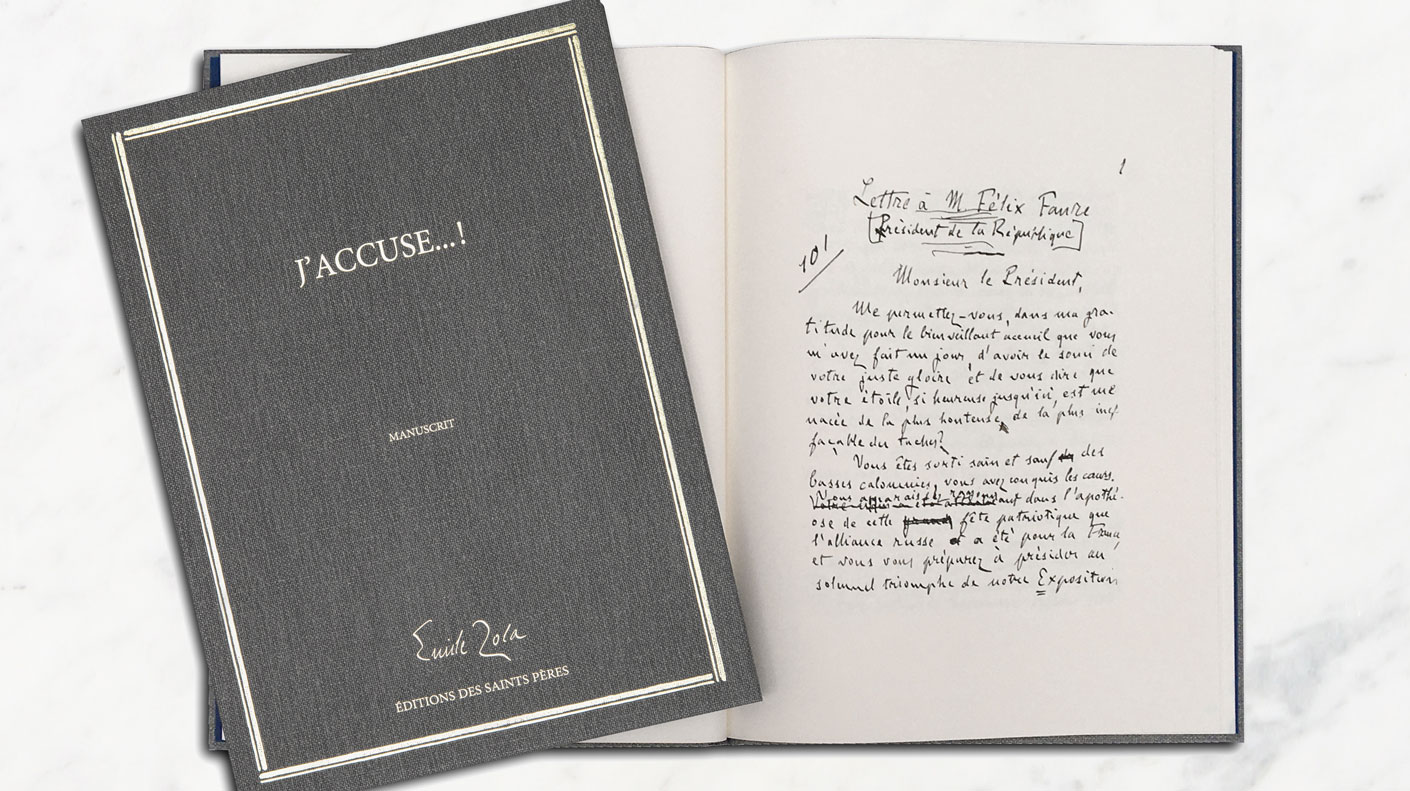 J'ACCUSE...!
MANUSCRIT
Émile Zola
ÉDITIONS DES SAINTS PÈRES
1
Lettre à M. Félix Faure
[Président de la République]
10'
Monsieur le Président,
Me permettez-vous, dans ma gra-
titude pour le bienveillant accueil que vous
m'avez fait un jour, d'avoir le souci de
votre juste gloire et de vous dire que
votre étoile, si heureuse jusqu'ici, est me
nacée de la plus honteuse, de la plus inef-
façable des taches?
Vous êtes sorti sain et sauf des
basses calomnies, vous avez conquis les cœurs.
Vous apparaissez rayonnant dans l'apothé-
ose de cette fête patriotique que
l'alliance russe a été pour la France,
et vous vous préparez à présider au
solennel triomphe de notre Exposition